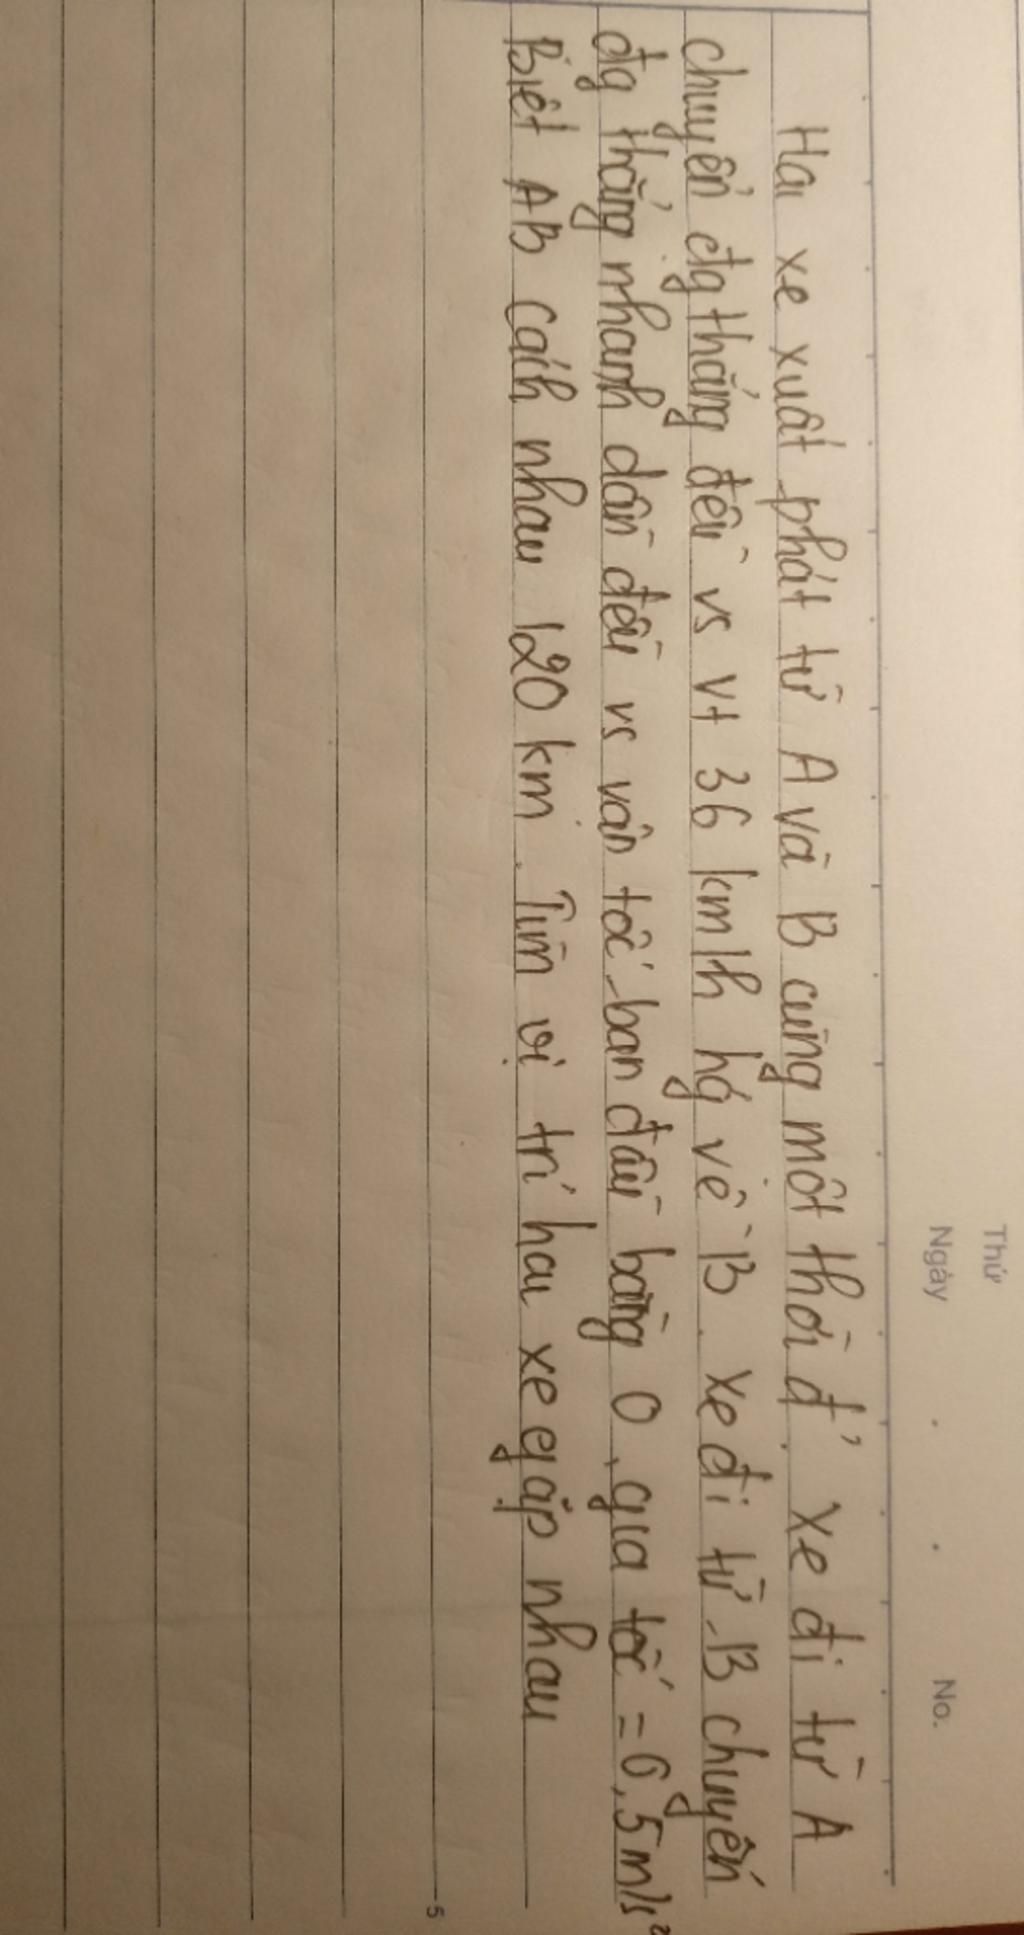 Thứ
Ngày . . No.
Hai xe xuất phát từ A và B cùng một thời đ' xe đi từ A
chuyển đg thẳng đều vs vt 36 km/h hg về B. xe đi từ B chuyển
đg thẳng nhanh dần đều vs vận tốc ban đầu bằng 0, gia tốc = 0,5 m/s²
Biết AB cách nhau 120 km. Tìm vị trí hai xe gặp nhau
5